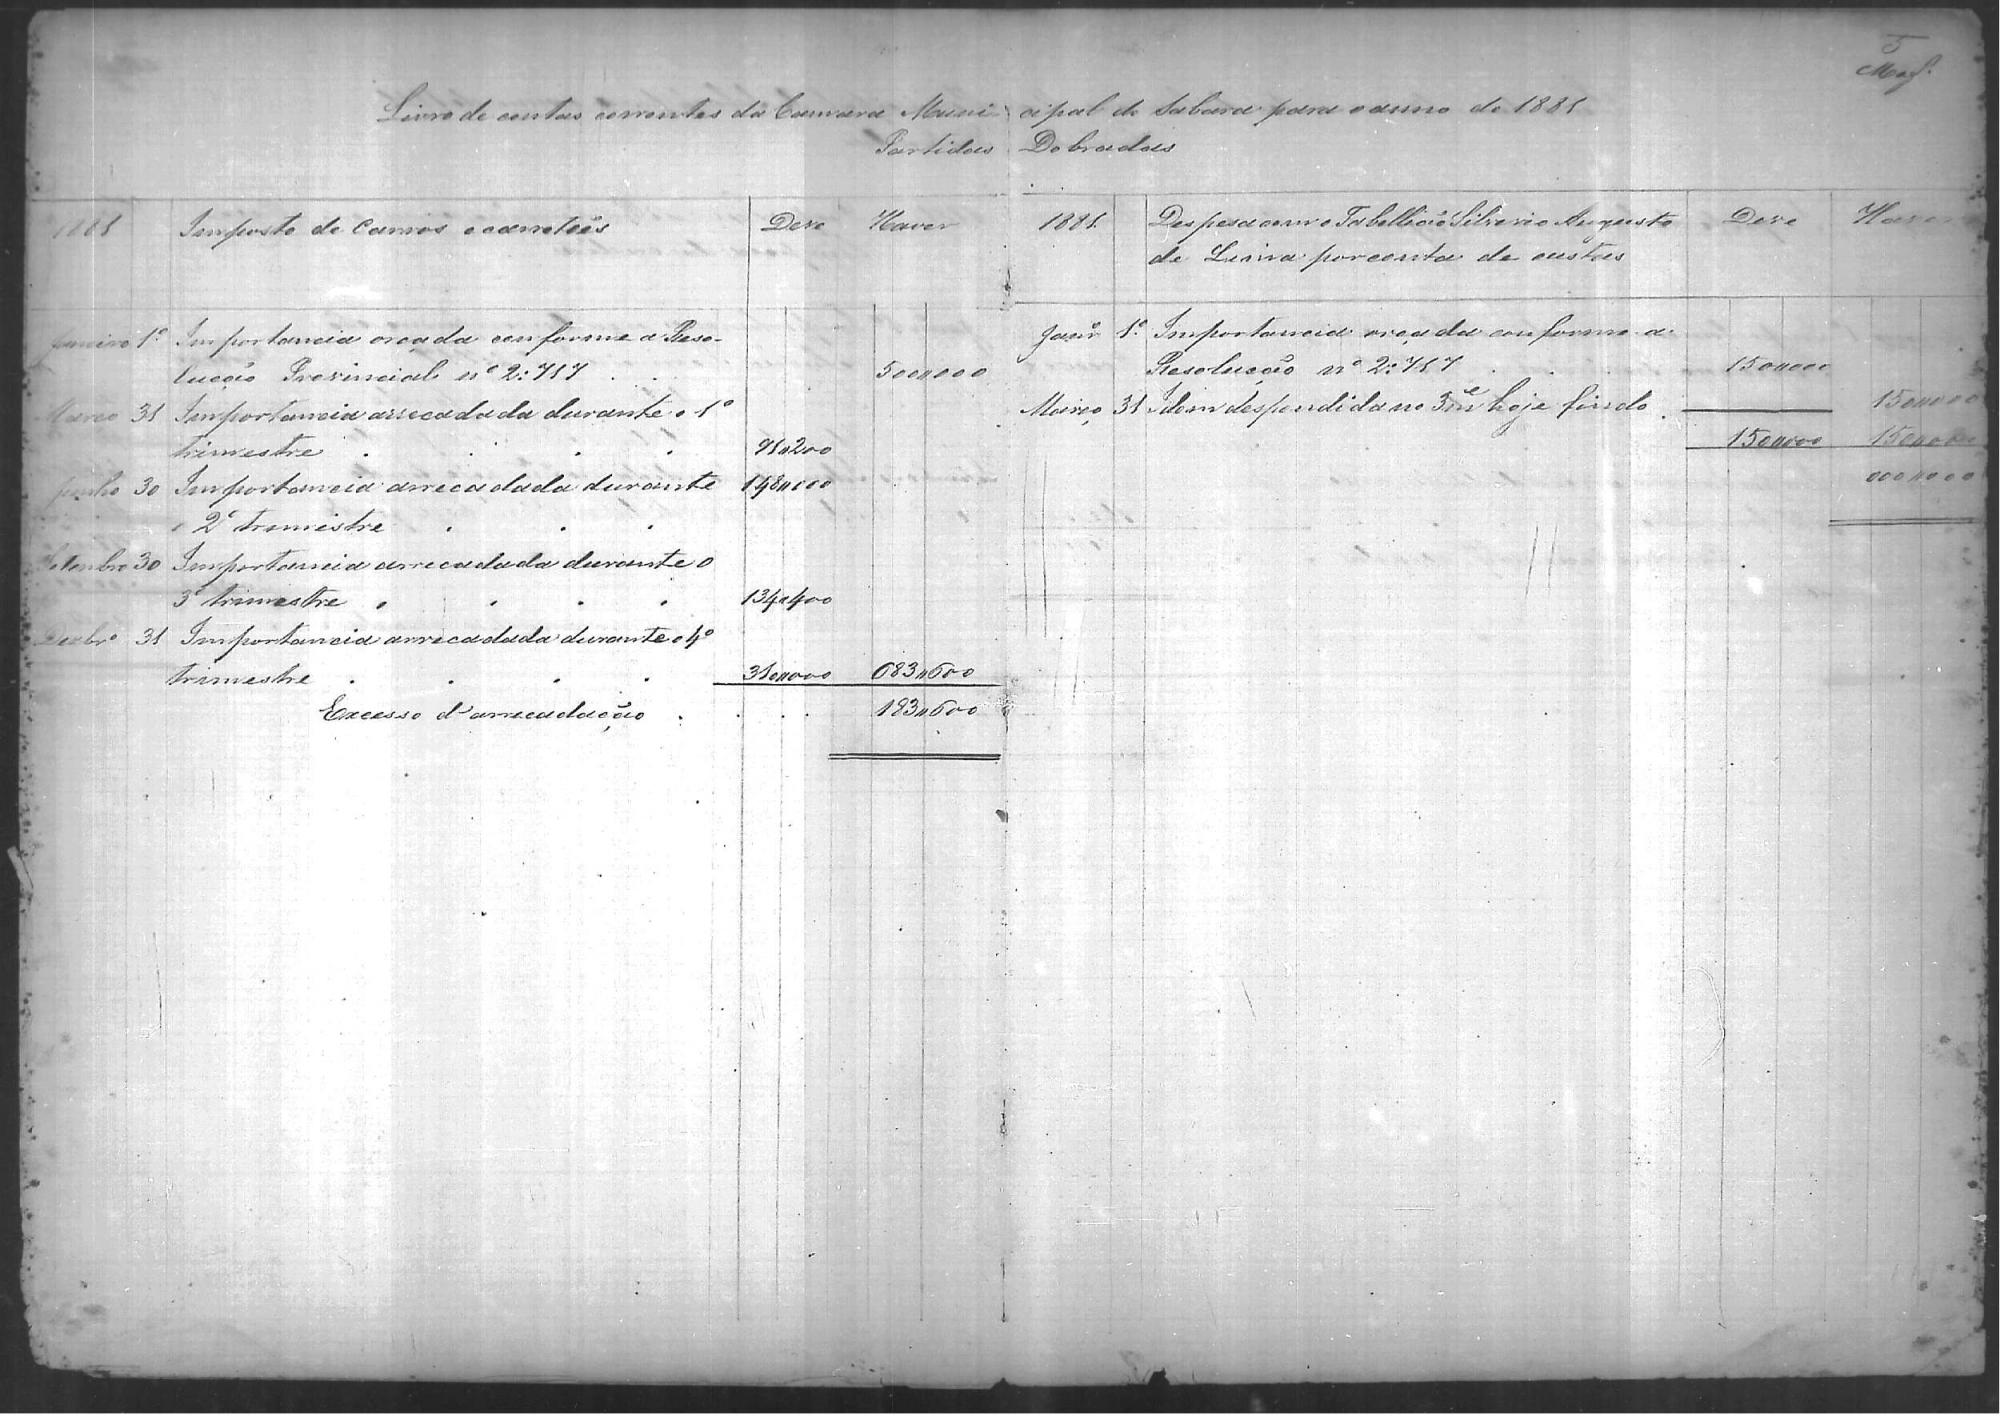 5
Livro de contas correntes da Camara Municipal de Sabara para o anno de 1881
Partidas Dobradas
1881 Imposto de Carros e carretões Deve Haver
Janeiro 1º Importancia orçada conforme a Reso-
lução Provincial nº 2:717 . . 500"000
Março 31 Importancia arrecadada durante o 1º
trimestre . . . . 91"200
Junho 30 Importancia arrecadada durante 148"000
o 2º trimestre . . .
Setembro 30 Importancia arrecadada durante o
3º trimestre . . . . 134"400
Dezbro 31 Importancia arrecadada durante o 4º
trimestre . . . . 310"000 683"600
Excesso d'arrecadação . . . . 183"600
1881 Despesa com o Tabellião Silverio Augusto Deve Haver
de Lima por conta de custas
Janrº 1º Importancia orçada conforme a
Resolução nº 2:717 . . . 150"000
Março 31 Idem despendida no 3me hoje findo . 150"000
150"000 150"000
000"000